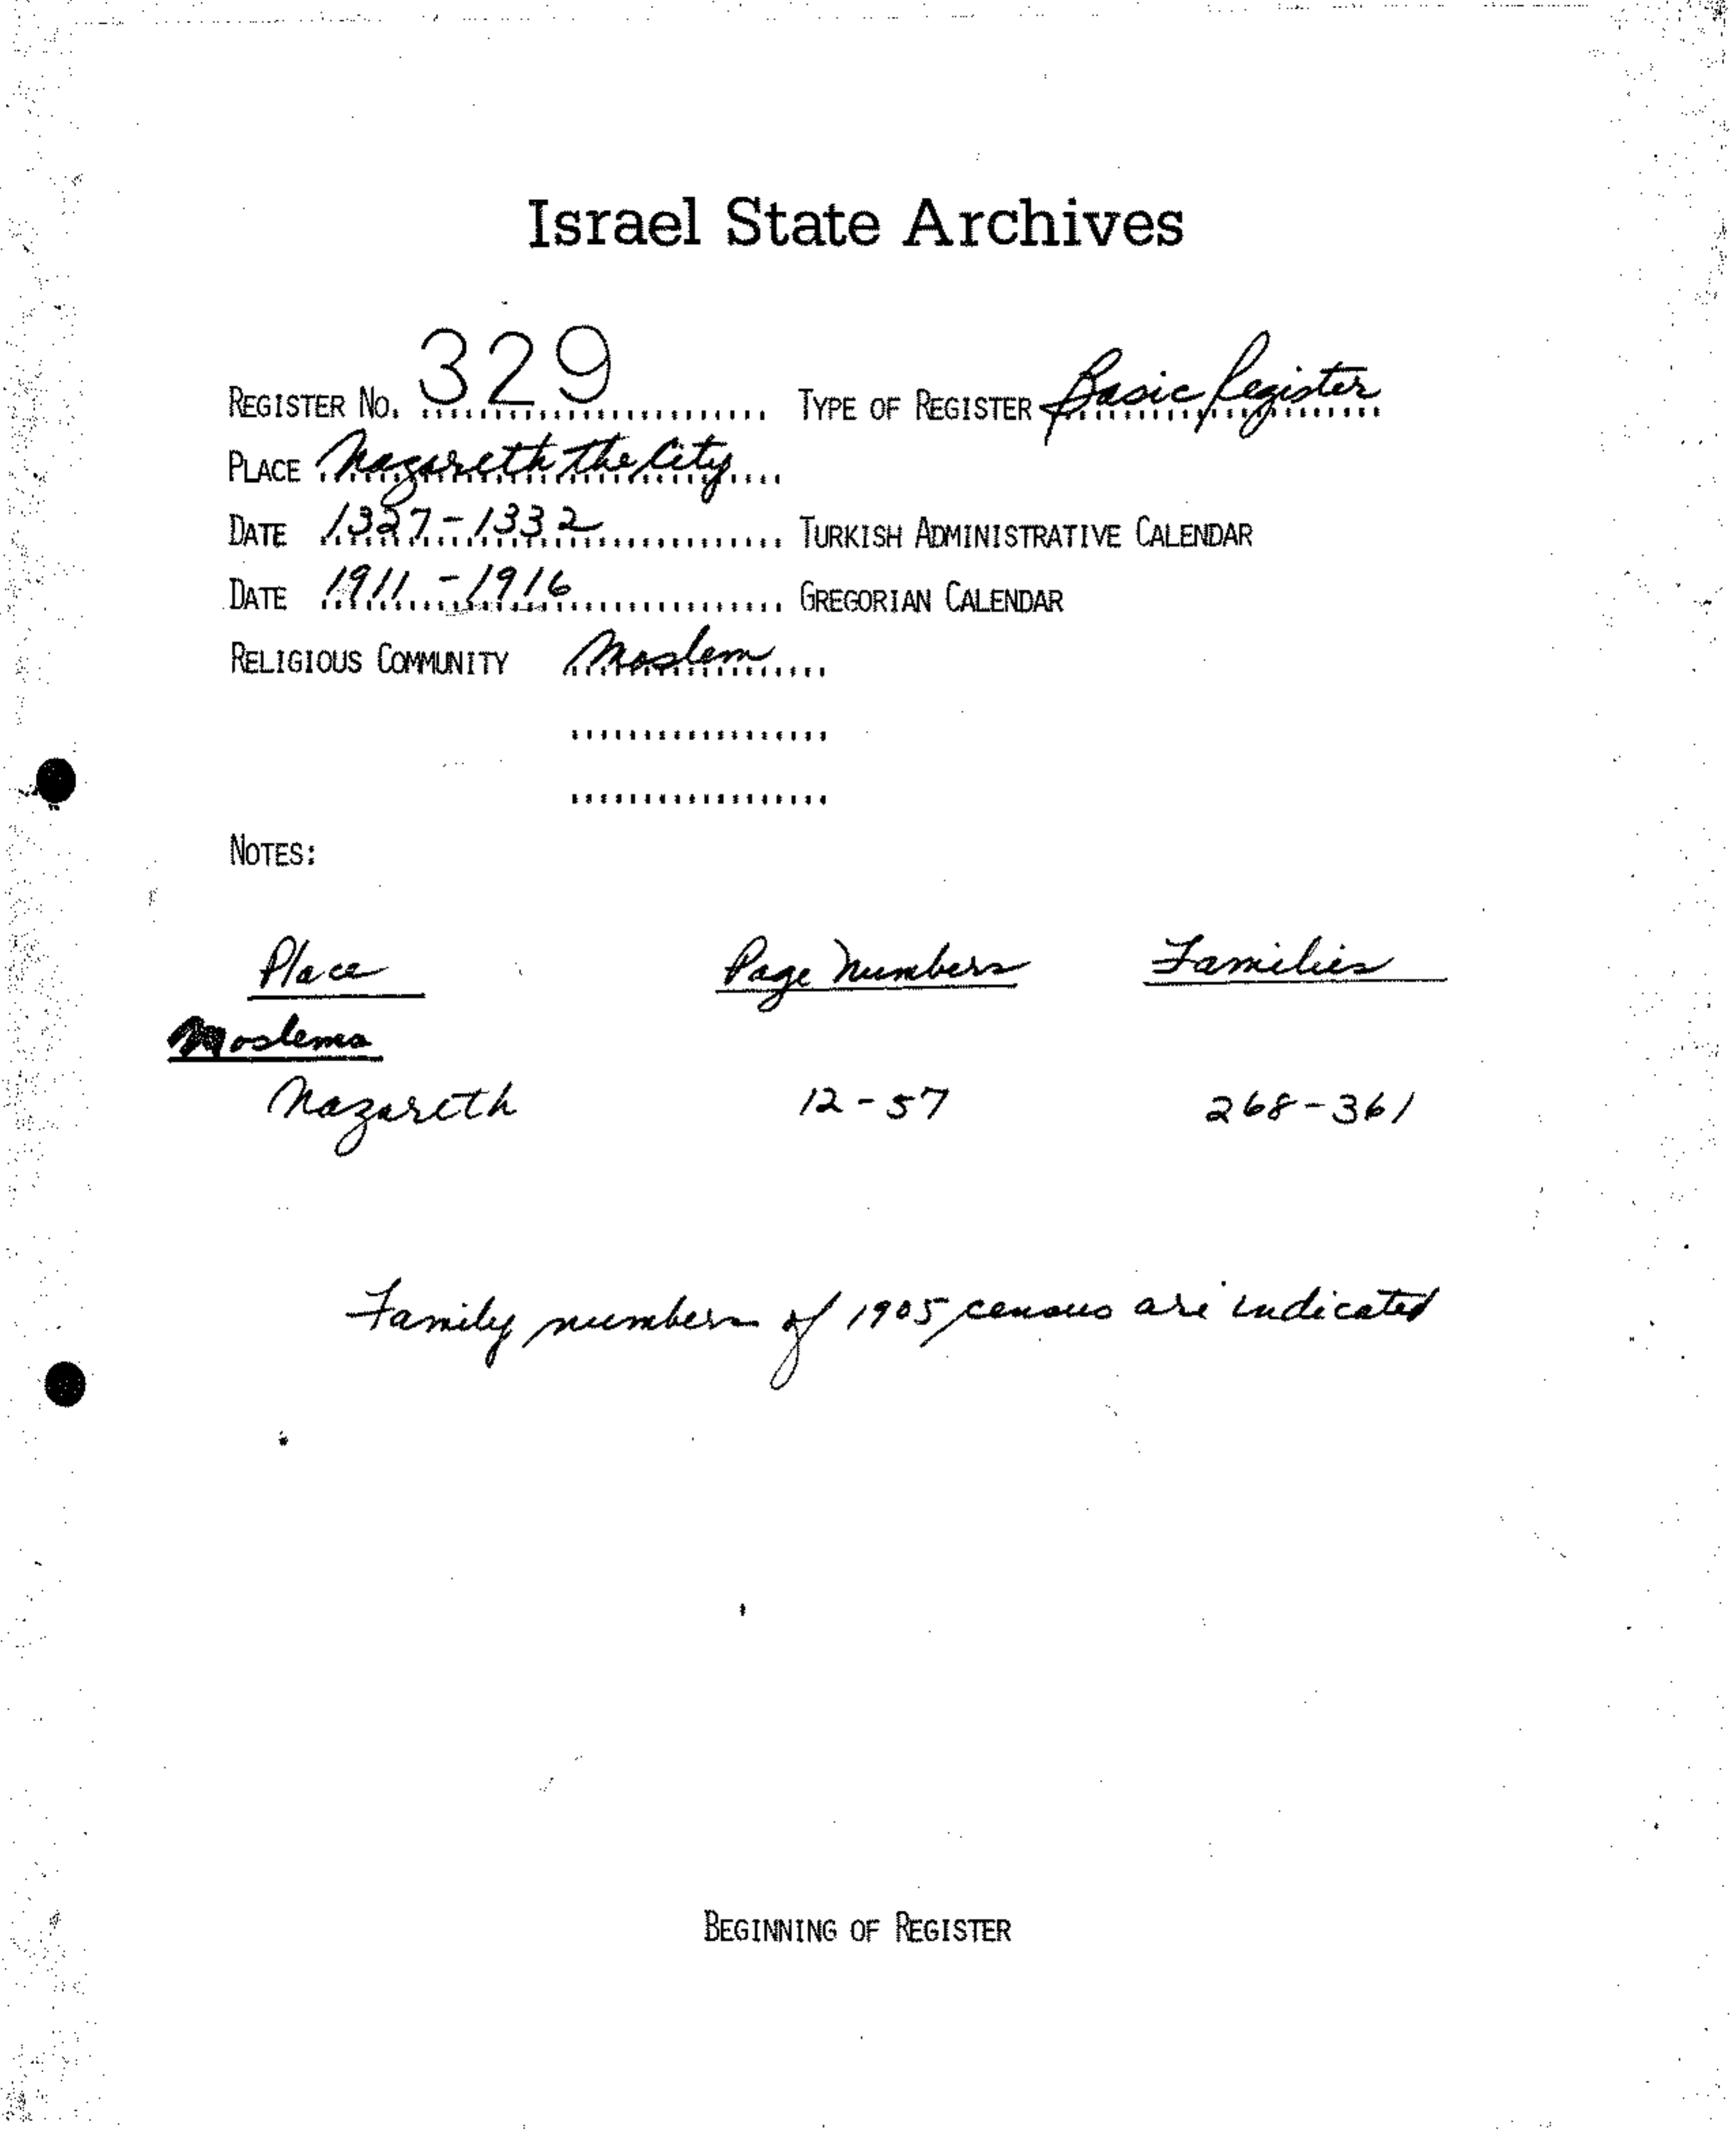 Israel State Archives
REGISTER NO. 329 TYPE OF REGISTER Basic Register
PLACE Nazareth the City
DATE 1327-1332 TURKISH ADMINISTRATIVE CALENDAR
DATE 1911-1916 GREGORIAN CALENDAR
RELIGIOUS COMMUNITY Moslem
NOTES:
Place Page Numbers Families
Moslems
Nazareth 12-57 268-361
Family numbers of 1905 census are indicated
BEGINNING OF REGISTER